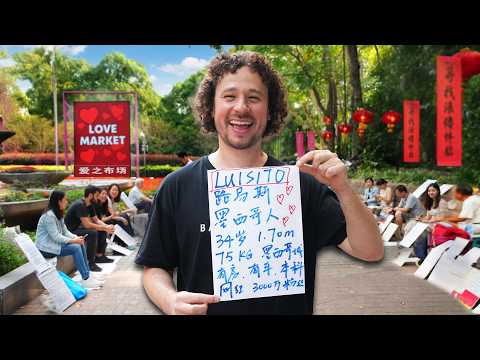 LOVE
MARKET
爱之布场
LUISITO
路易斯
墨西哥人
34岁 1.70m
75KG 墨西哥城
有房.有车.本科
网红 3000万粉丝